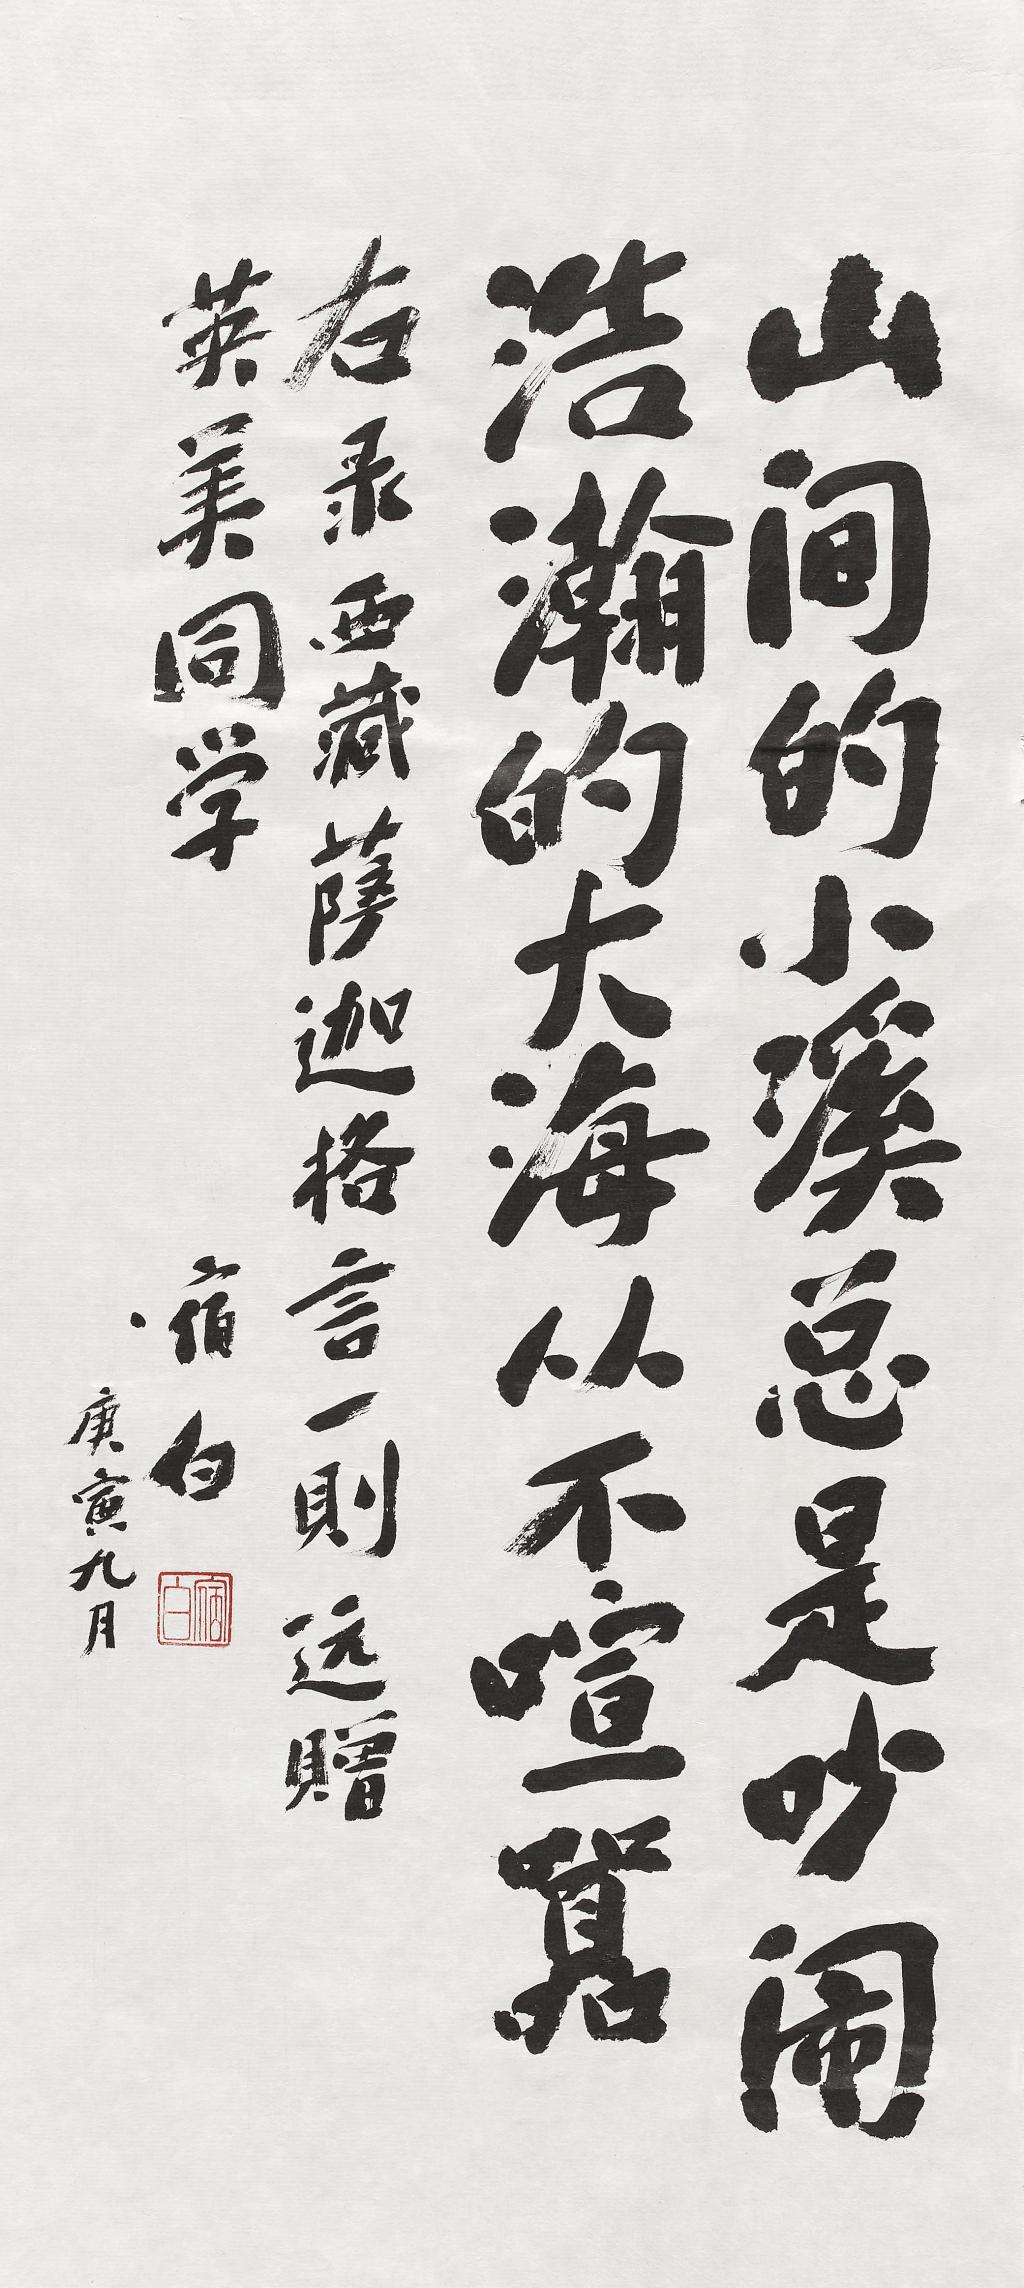 山间的小溪总是吵闹
浩瀚的大海从不喧嚣
右录西藏萨迦格言一则 远赠
英美同学
宿白
庚寅九月
宿白